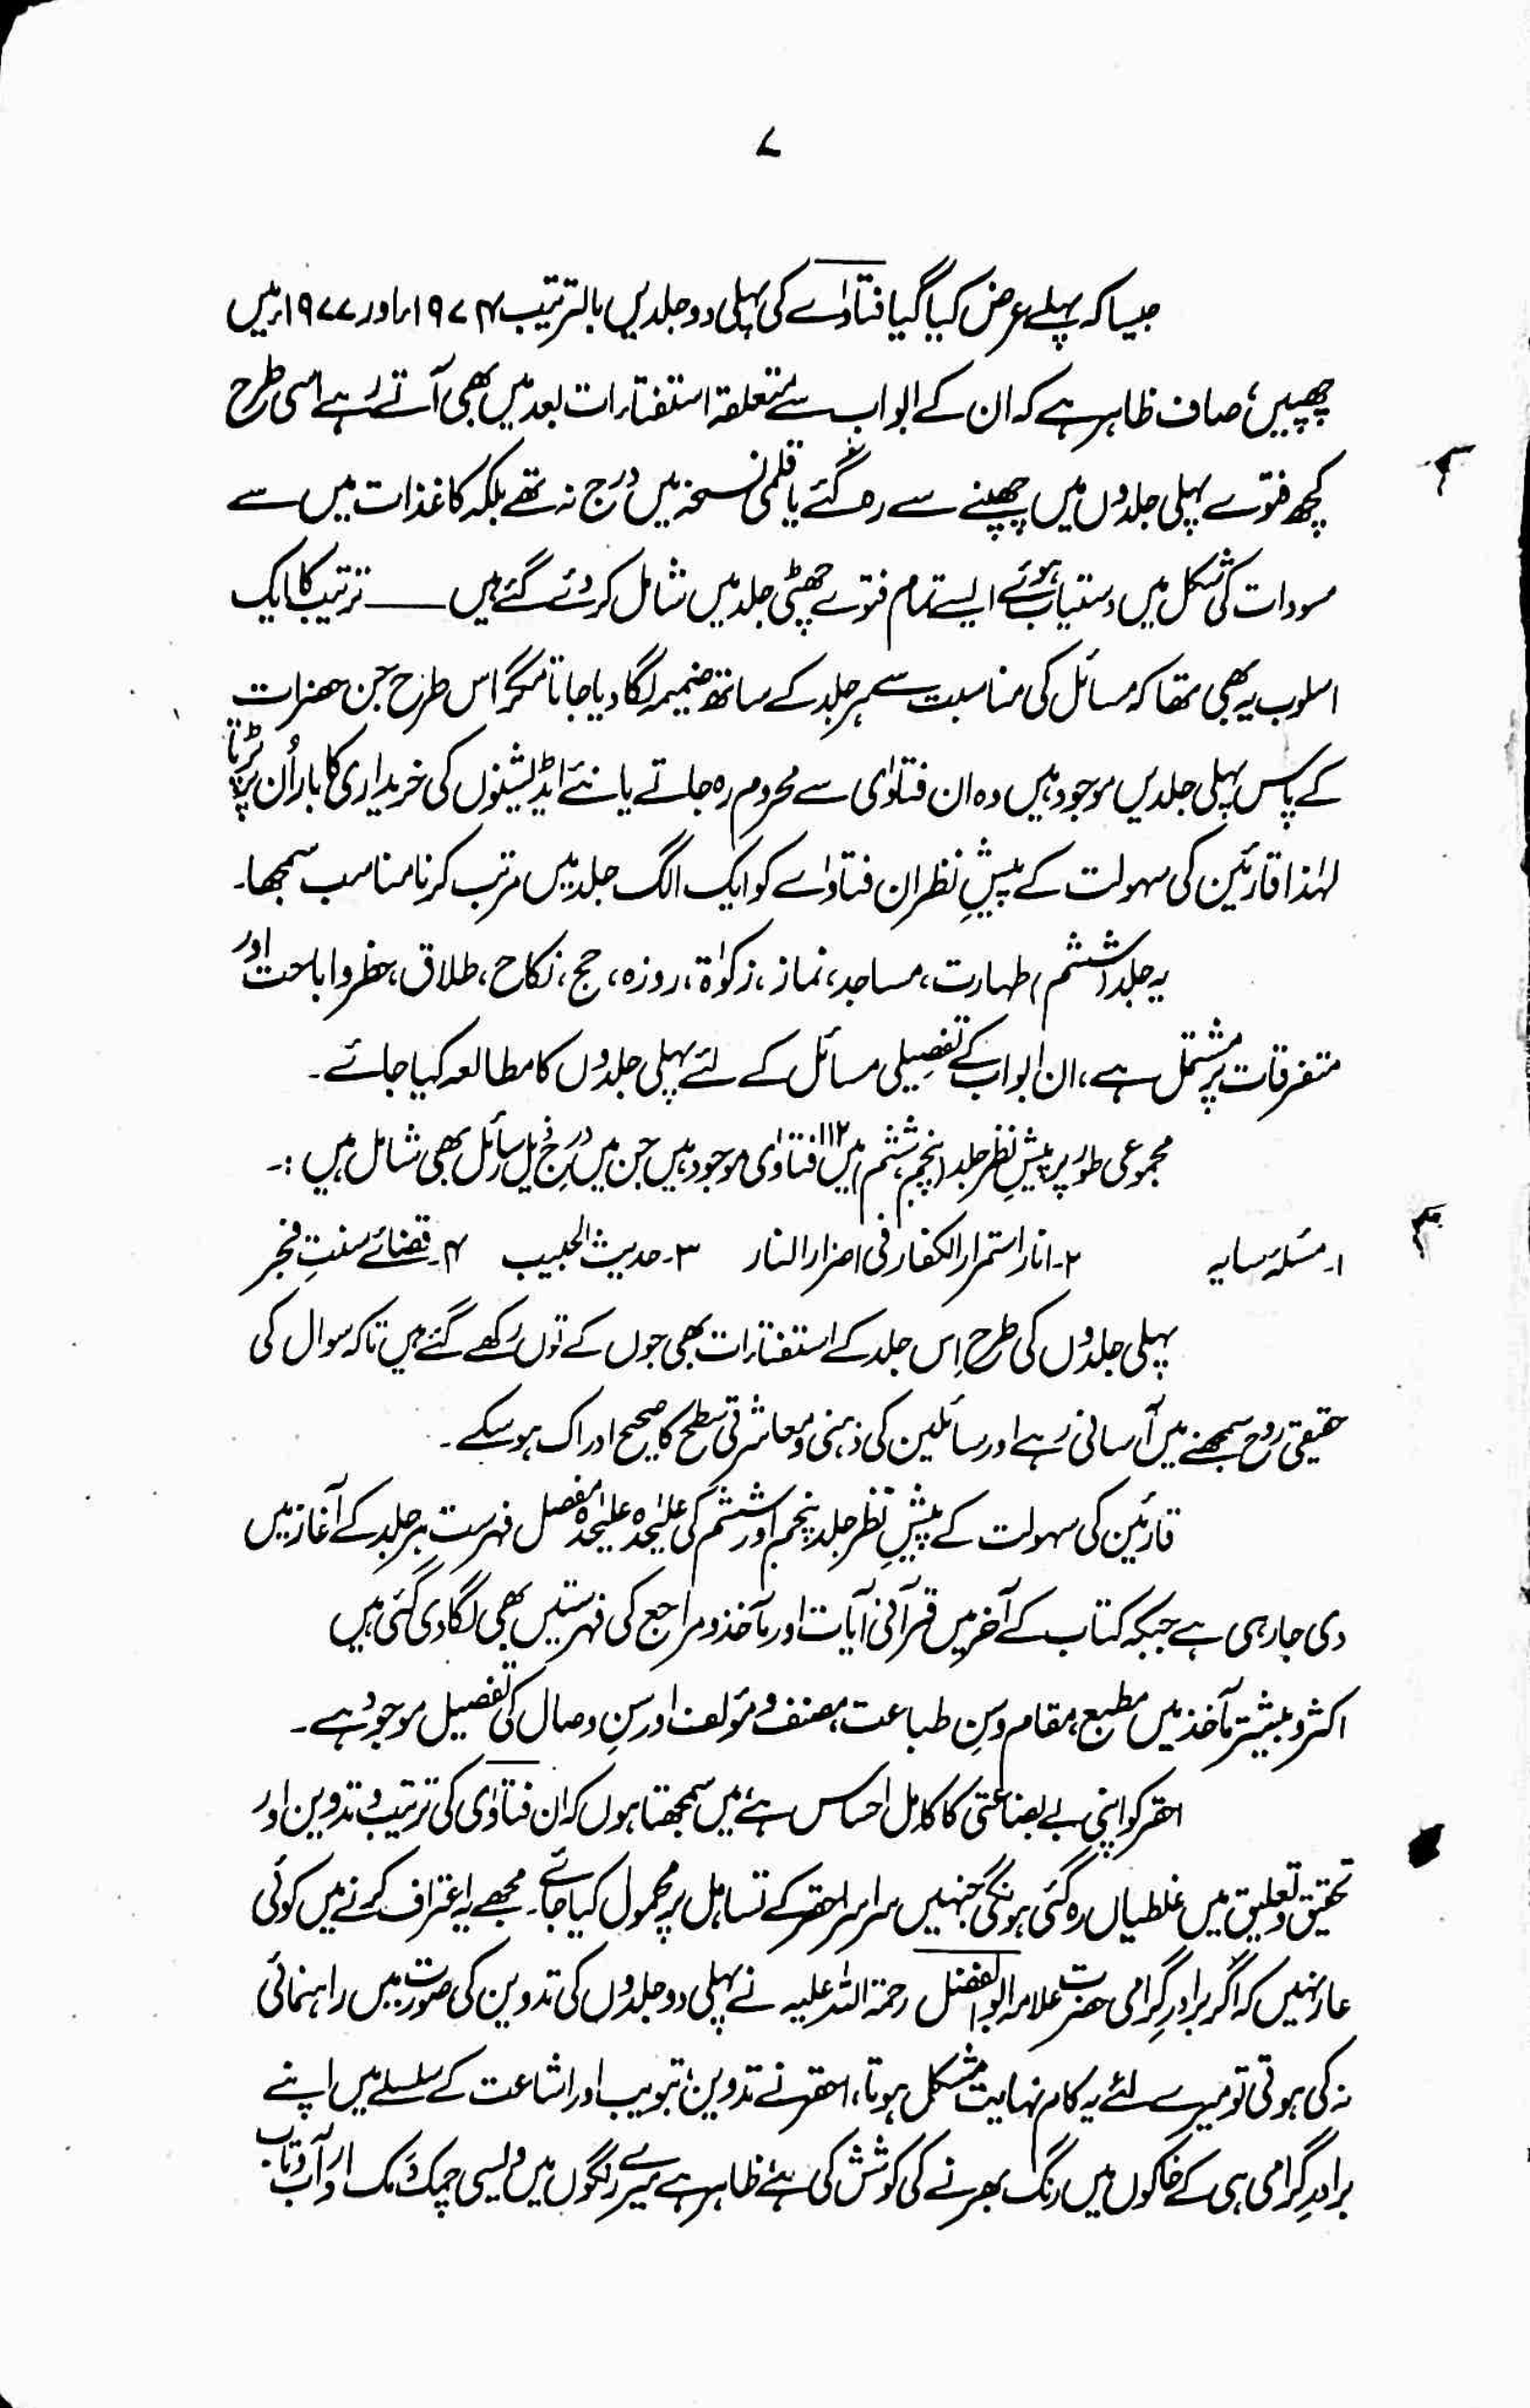 ۷
جیسا کہ پہلے عرض کیا گیا فتاوٰے کی پہلی دو جلدیں بالترتیب ۱۹۷۴ء اور ۱۹۷۷ء میں
چھپیں، صاف ظاہر ہے کہ ان کے ابواب سے متعلقہ استفتارات بعد میں بھی آتے رہے اسی طرح
کچھ فتوے پہلی جلدوں میں چھپنے سے رہ گئے یا قلمی نسخہ میں درج نہ تھے بلکہ کاغذات میں سے
مسودات کی شکل میں دستیاب ہوئے ایسے تمام فتوے چھٹی جلد میں شامل کر دئے گئے ہیں ـــــ ترتیب کا ایک
اسلوب یہ بھی تھا کہ مسائل کی مناسبت سے ہر جلد کے ساتھ ضمیمہ لگا دیا جاتا مگر اس طرح جن حضرات
کے پاس پہلی جلدیں موجود ہیں وہ ان فتاوٰی سے محروم رہ جاتے یا نئے ایڈیشنوں کی خریداری کا بار اُن پر پڑتا
لہٰذا قارئین کی سہولت کے پیشِ نظر ان فتاوٰے کو ایک الگ جلد میں مرتب کرنا مناسب سمجھا۔
یہ جلد (ششم) طہارت، مساجد، نماز، زکوٰۃ، روزہ، حج، نکاح، طلاق، حظر و اباحت اور
متفرقات پر مشتمل ہے، ان ابواب کے تفصیلی مسائل کے لئے پہلی جلدوں کا مطالعہ کیا جائے۔
مجموعی طور پر پیشِ نظر جلد (پنجم، ششم) میں ۱۱۲ فتاوٰی موجود ہیں جن میں درج ذیل رسائل بھی شامل ہیں :۔
۱۔ مسئلہ سایہ ۲۔ انار استمرار الکفار فی اضرار النار ۳۔ حدیث الحبیب ۴۔ قضائے سنتِ فجر
پہلی جلدوں کی طرح اِس جلد کے استفتارات بھی جوں کے توں رکھے گئے ہیں تاکہ سوال کی
حقیقی روح سمجھنے میں آسانی رہے اور سائلین کی ذہنی و معاشرتی سطح کا صحیح ادراک ہو سکے۔
قارئین کی سہولت کے پیشِ نظر جلد پنجم اور ششم کی علیٰحدہ علیٰحدہ مفصل فہرست ہر جلد کے آغاز میں
دی جا رہی ہے جبکہ کتاب کے آخر میں قرآنی آیات اور مآخذ و مراجع کی فہرستیں بھی لگا دی گئی ہیں
اکثر و بیشتر مآخذ میں مطبع، مقام و سنِ طباعت، مصنف و مؤلف اور سنِ وصال کی تفصیل موجود ہے۔
احقر کو اپنی بے بضاعتی کا کامل احساس ہے، میں سمجھتا ہوں کہ ان فتاوٰی کی ترتیب و تدوین اور
تحقیق و تعلیق میں غلطیاں رہ گئی ہونگی جنہیں سراسر احقر کے تساہل پر محمول کیا جائے۔ مجھے یہ اعتراف کرنے میں کوئی
عار نہیں کہ اگر برادرِ گرامی حضرت علامہ ابوالفضل رحمۃ اللہ علیہ نے پہلی دو جلدوں کی تدوین کی صورت میں راہنمائی
نہ کی ہوتی تو میرے لئے یہ کام نہایت مشکل ہوتا، احقر نے تدوین، تبویب اور اشاعت کے سلسلے میں اپنے
برادرِ گرامی ہی کے خاکوں میں رنگ بھرنے کی کوشش کی ہے، ظاہر ہے میرے رنگوں میں ویسی چمک دمک اور آب و تاب